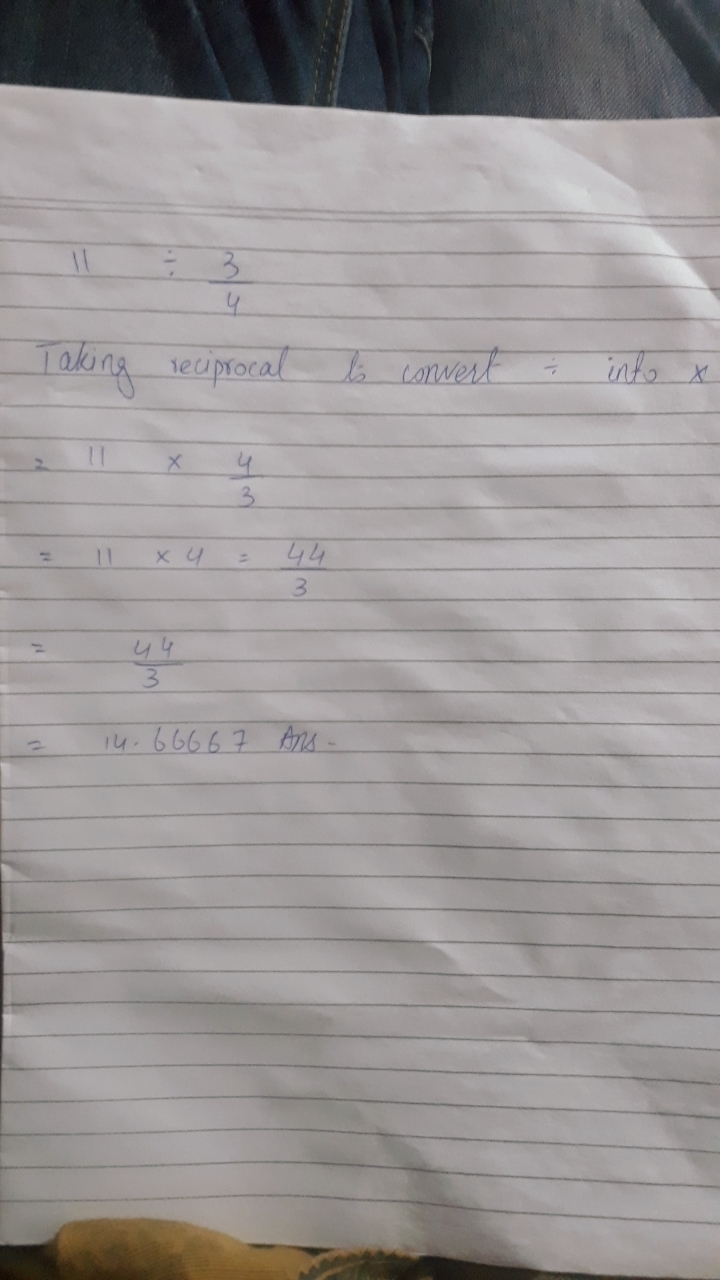 11 ÷ 3/4
Taking reciprocal to convert ÷ into ×
= 11 × 4/3
= 11 × 4 = 44/3
= 44/3
= 14.66667 Ans-